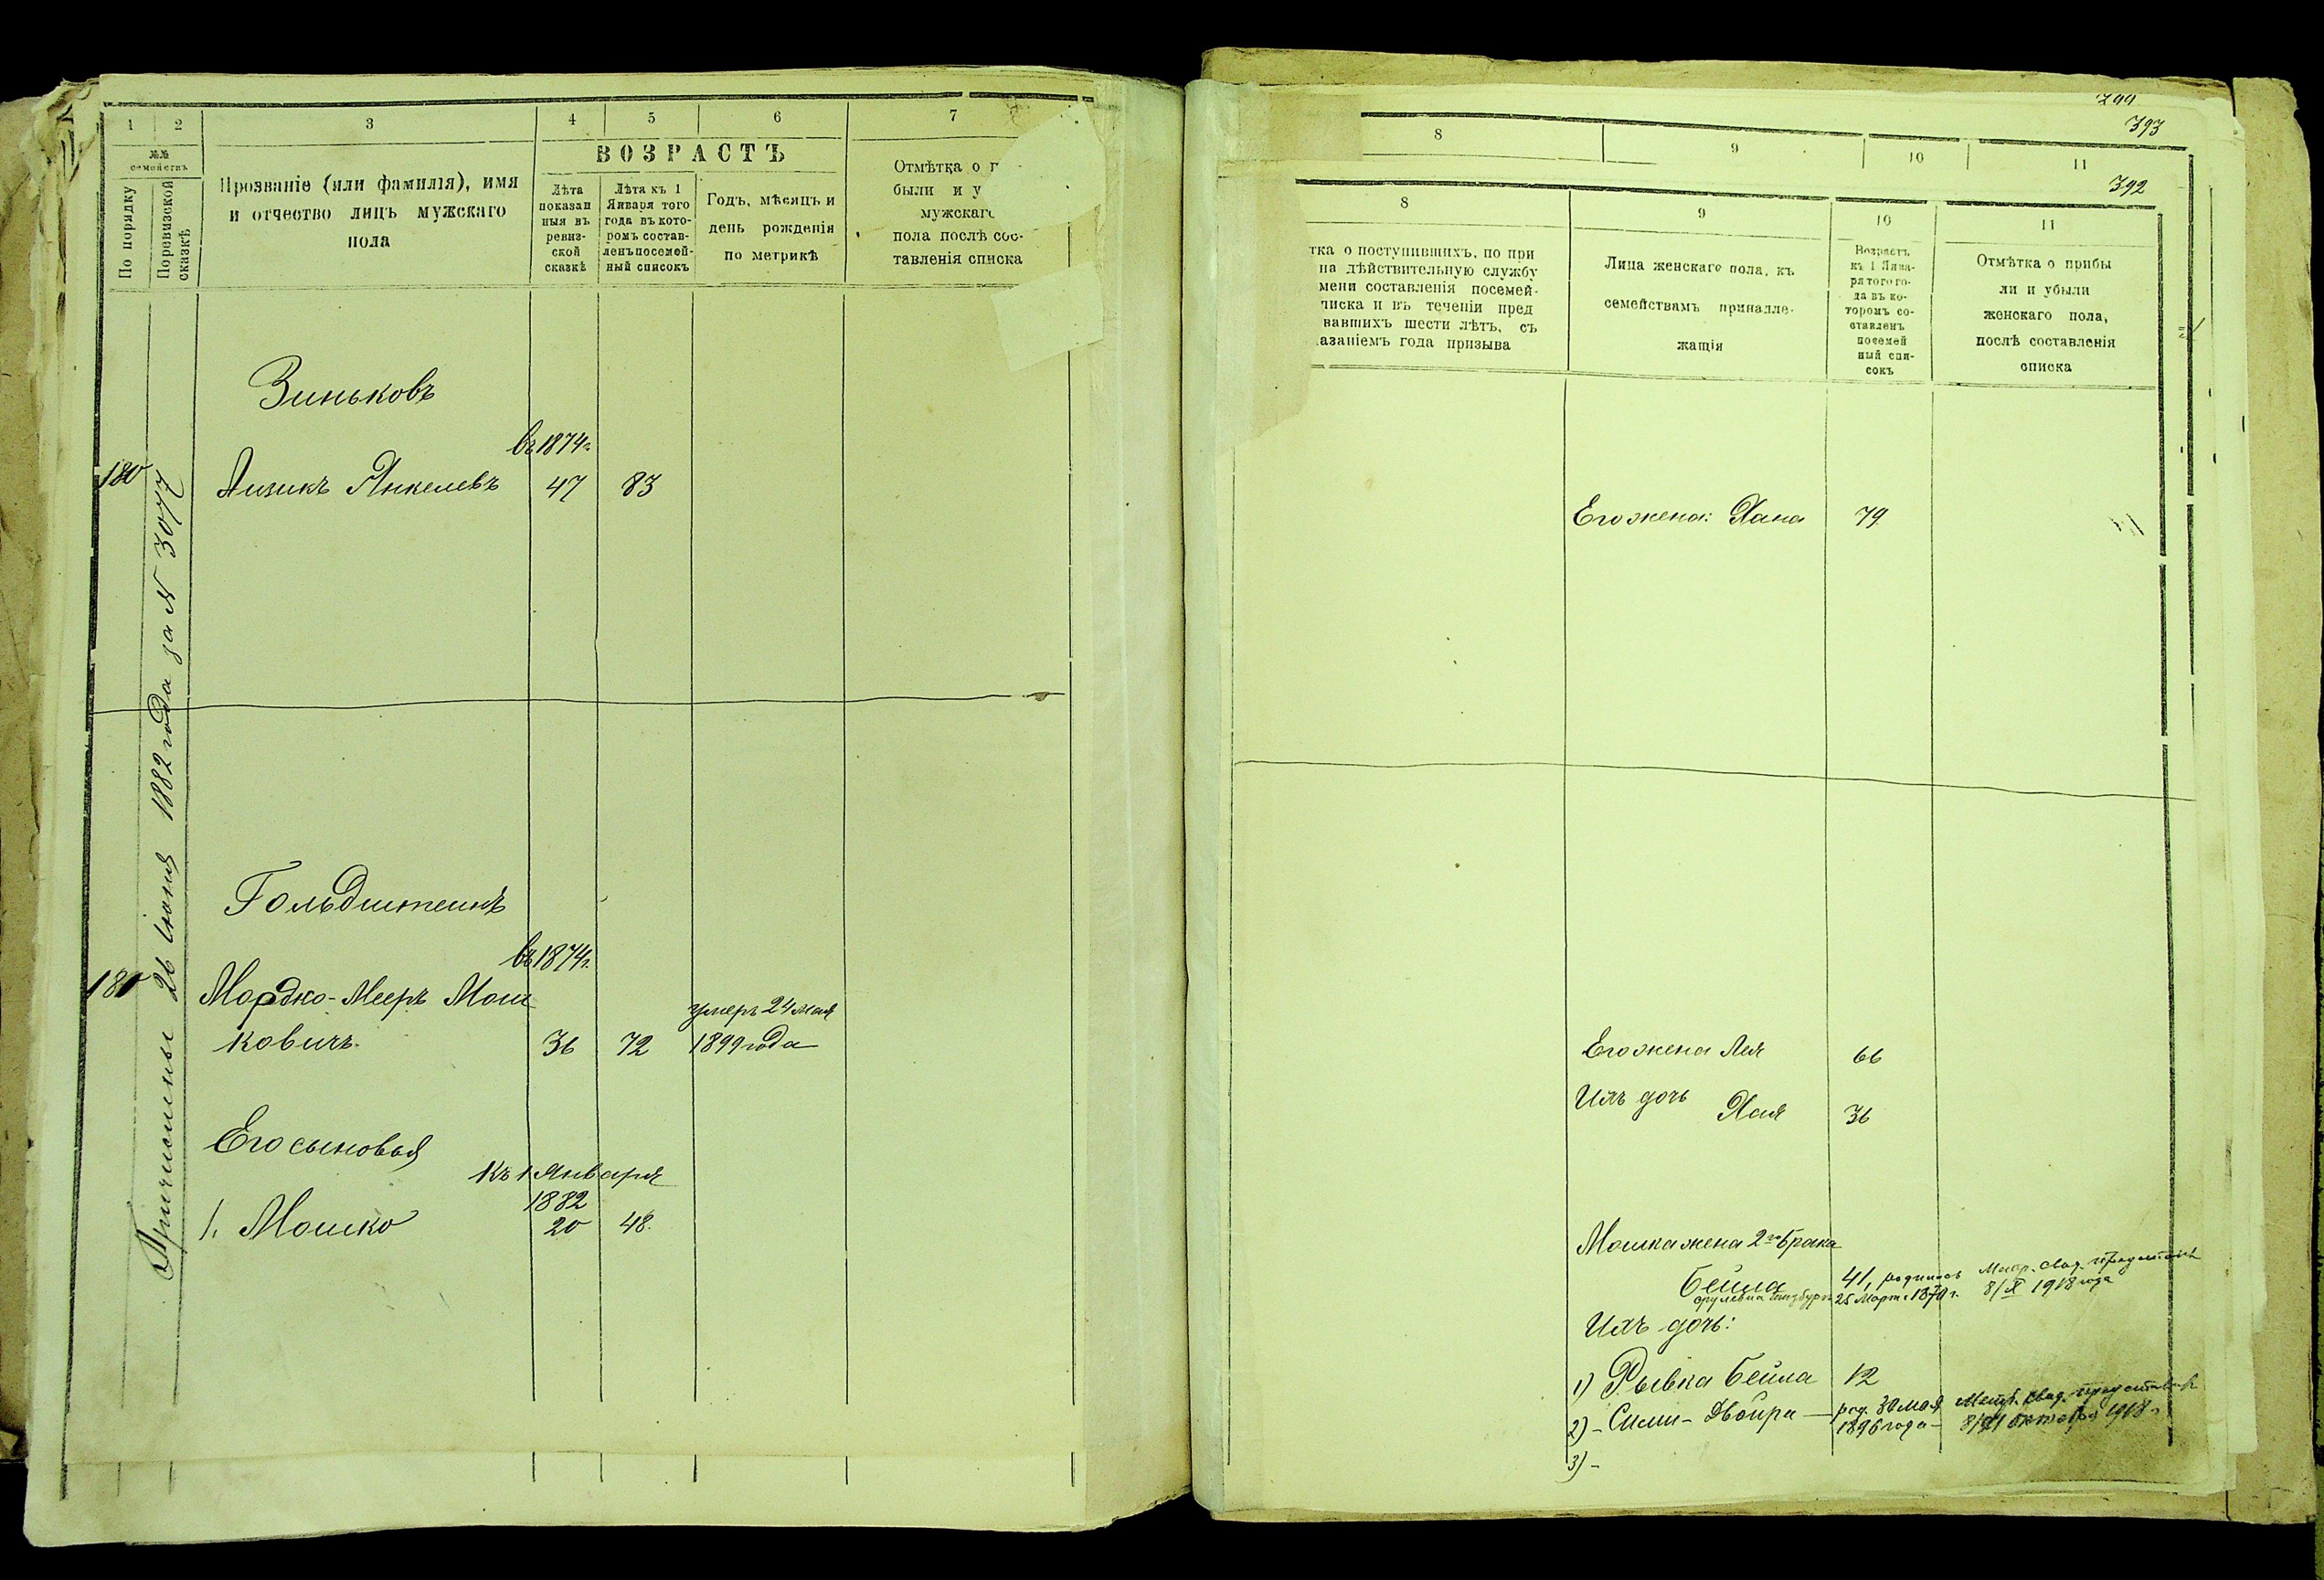 1 2 3 4 5 6 7
№№ семействъ
По порядку
Поревизской сказкѣ
Прозваніе (или фамилія), имя
и отчество лицъ мужскаго
пола
ВОЗРАСТЪ
Лѣта
показан
ныя въ
ревиз-
ской
сказкѣ
Лѣта къ 1
Января того
года въ кото-
ромъ состав-
ленъ посемей-
ный списокъ
Годъ, мѣсяцъ и
день рожденія
по метрикѣ
Отмѣтка о п
были и у
мужскаго
пола послѣ сос-
тавленія списка
Зиньковъ
въ 1874г.
180
Янкелевъ 47 83
Причислены 26 Іюня 1882 года за № 3077
Гольдштейнъ
въ 1874г.
Мордко-Мееръ Мош
ковичъ 36 72
умеръ 24 мая
1899 года
Его сыновья
Къ 1 Января
1882
1. Мошко 20 48.
393
8 9 10 11
392
8 9 10 11
тка о поступившихъ, по при
на дѣйствительную службу
мени составленія посемей-
писка и въ теченіи пред
вавшихъ шести лѣтъ, съ
азаніемъ года призыва
Лица женскаго пола, къ
семействамъ принадле-
жащія
Возрастъ
къ 1 Янва-
ря того го-
да въ ко-
торомъ со-
ставленъ
посемей
ный спи-
сокъ
Отмѣтка о прибы
ли и убыли
женскаго пола,
послѣ составленія
списка
Его жена: Хана 79
Его жена Лея 66
Ихъ дочь
Хая 36
Мошка жена 2го брака
Бейла 41, родилась
25 Марта 1870 г.
Метр. свид. представл
8/X 1918 года
Ихъ дочь:
1) Рывка Бейла 12
2) - Сими-Двойра — род. 30 мая
1896 года -
Метр. свид. представл
октября 1918 г.
3) -